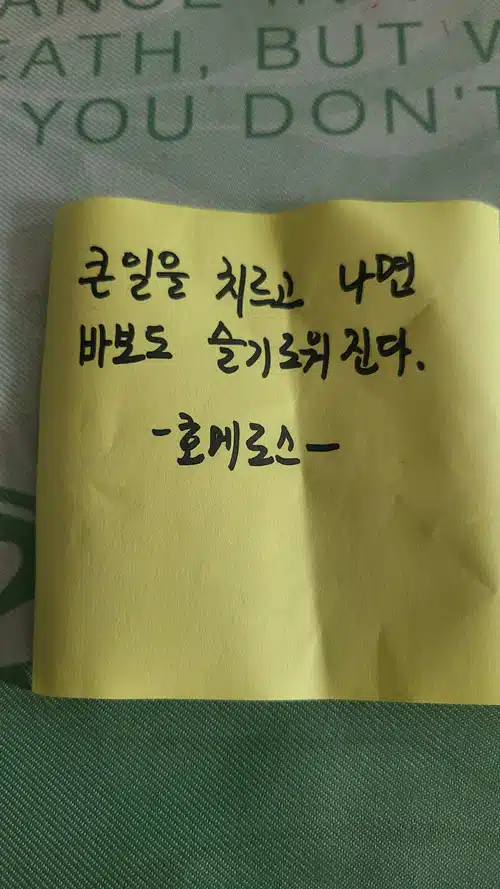 EATH, BUT
YOU DON'T
큰일을 치르고 나면
바보도 슬기로워진다.
-호메로스-